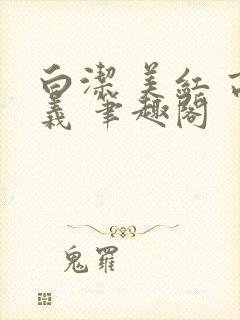 白潔 美紅 高
義 筆趣閣
鬼羅